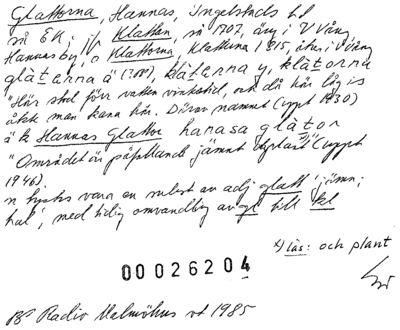 Glattorna, Hannas, Ingelstads hd
så EK; jfr Klattan, så 1707, äng i V Vång
Hannas by, o Klattorna, Klattorna 1815, åker i V äng
glàtarna å (1788), klàtarna y, klàtorna
"Här stod förr vatten vintertid, och då här låg is
åkte man kana här. Därav namnet (uppt 1930)
ä k Hannas Glattor hanasa glàtor
"Området är påfallande jämnt o plant" x) (uppt
1946).
n tycks vara en subst av adj glatt 'jämn;
hal', med tidig omvandling av gl till kl
x) läs: och plant
00026204
BP Radio Malmöhus vt 1985